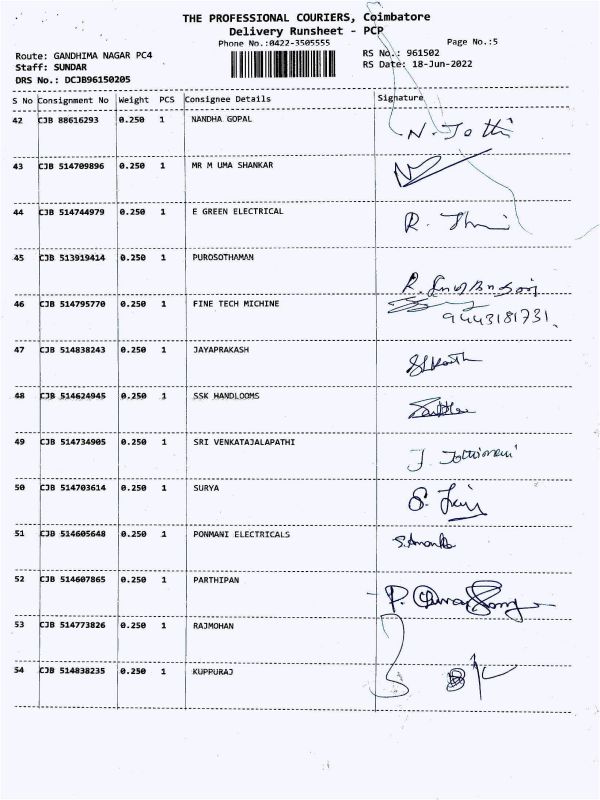 THE PROFESSIONAL COURIERS, Coimbatore
Delivery Runsheet - PCP
Phone No.:0422-3505555
Page No.:5
Route: GANDHIMA NAGAR PC4
RS No.: 961502
Staff: SUNDAR
RS Date: 18-Jun-2022
DRS No.: DCJB96150205
S No Consignment No Weight PCS Consignee Details Signature
42 CJB 88616293 0.250 1 NANDHA GOPAL N. Jothi
43 CJB 514709896 0.250 1 MR M UMA SHANKAR
44 CJB 514744979 0.250 1 E GREEN ELECTRICAL R.
45 CJB 513919414 0.250 1 PUROSOTHAMAN R.
46 CJB 514795770 0.250 1 FINE TECH MICHINE 9443181731
47 CJB 514838243 0.250 1 JAYAPRAKASH
48 CJB 514624945 0.250 1 SSK HANDLOOMS
49 CJB 514734905 0.250 1 SRI VENKATAJALAPATHI J. Jothimani
50 CJB 514703614 0.250 1 SURYA S.
51 CJB 514605648 0.250 1 PONMANI ELECTRICALS
52 CJB 514607865 0.250 1 PARTHIPAN P.
53 CJB 514773826 0.250 1 RAJMOHAN
54 CJB 514838235 0.250 1 KUPPURAJ